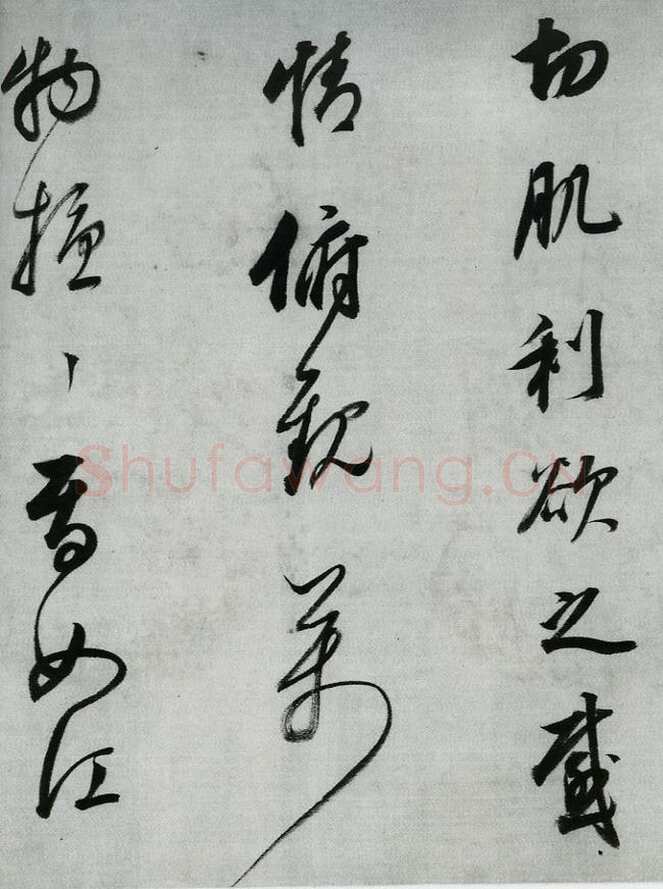 切肌利欲之感
情俯觀萬
物擾々焉如江
Shufawang.CN